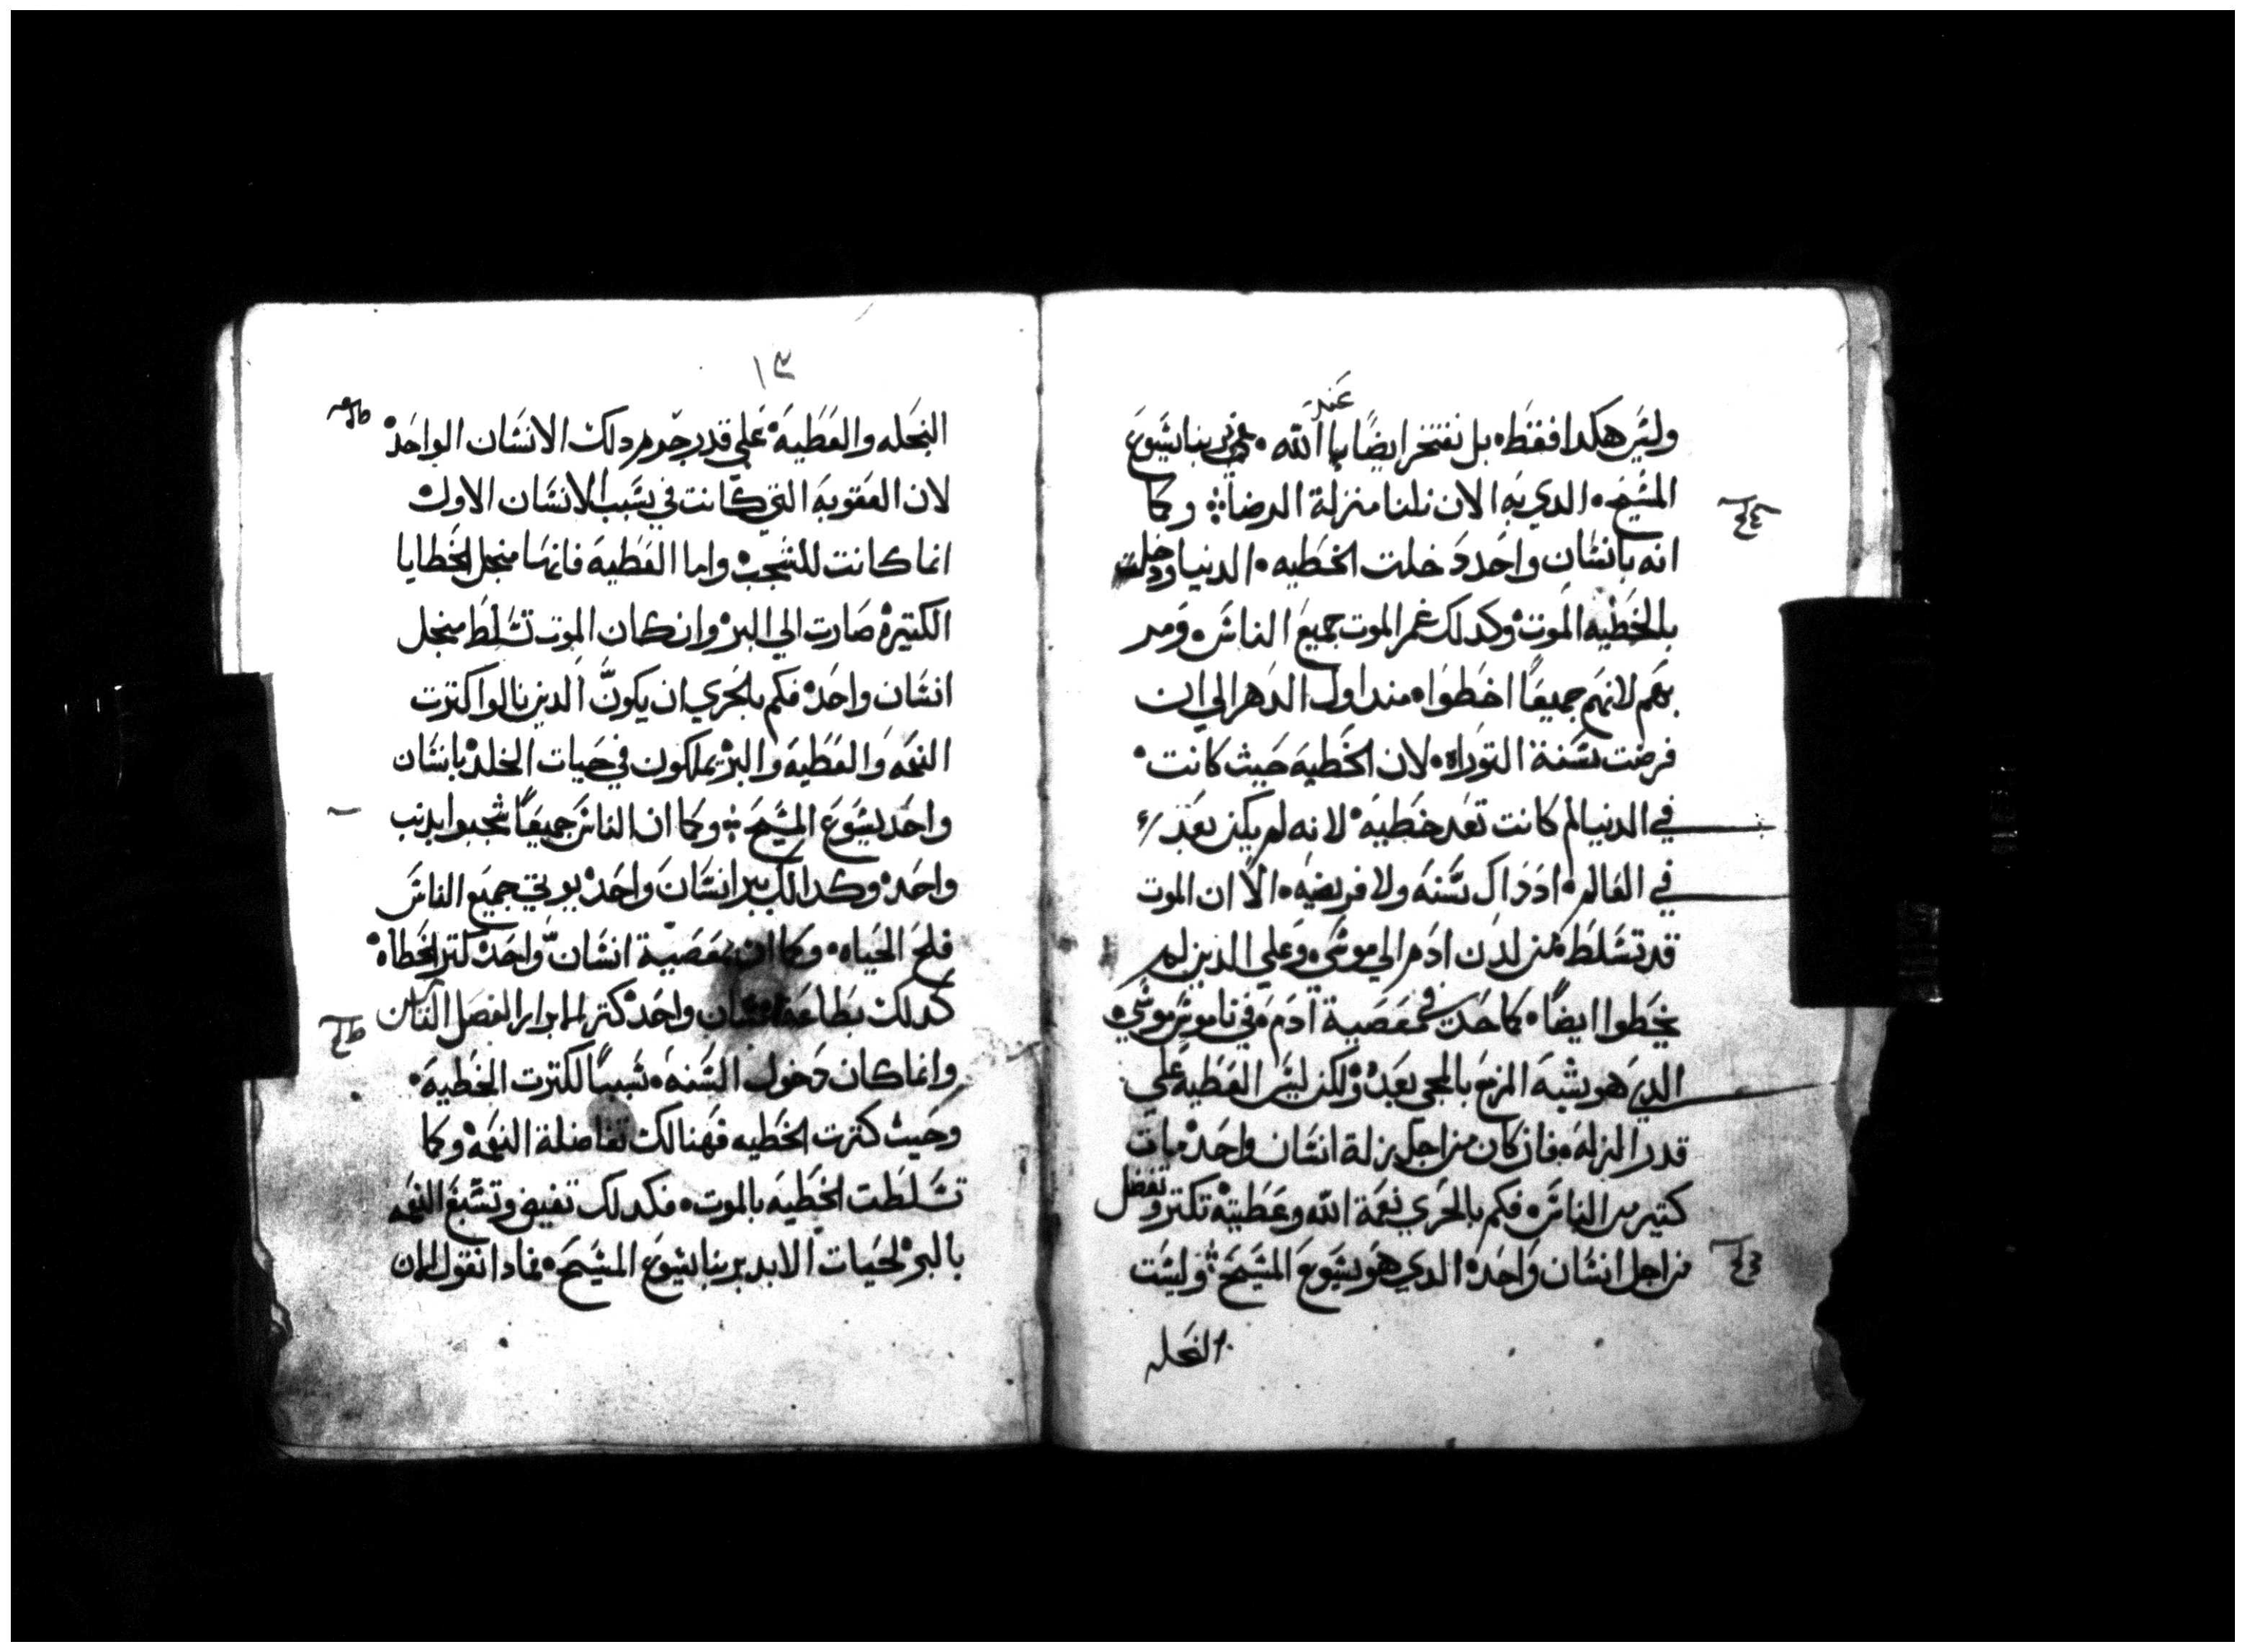 عند
وليس هكدا فقط بل نفتخر ايضًا بالله بربنا يشوع
المسيح الدي به الان نلنا منزلة الرضا وكما
انه بانسان واحد دخلت الخطيه الدنيا ودخلت
بالخطيه الموت وكدلك عم الموت جميع الناس ومر
بهم لانهم جميعًا اخطوا مند اول الدهر الي ان
فرضت سنة التوراه لان الخطيه حيث كانت
في الدنيا لم كانت تعد خطيه لانه لم يكن بعد
في العالم اد داك سنه ولا فريضه الا ان الموت
قد تسلط من لدن ادم الي موسي وعلي الدين لم
يخطوا ايضًا كما حدت في معصية ادم في ناموس موسي
الدي هو يشبه المزمع بالمجي بعد ولكن ليس العطيه علي
قدر الزله فان كان من اجل زلة انسان واحد مات
كتير من الناس فكم بالحري نعمة الله وعطيته تكتر وتفضل
من اجل انسان واحد الدي هو يشوع المسيح وليست
النحله
١٣
النحله والعطيه علي قدر جرم دلك الانسان الواحد
لان العقوبه التي كانت في سبب الانسان الاول
انما كانت للشجب واما العطيه فانها منجل الخطايا
الكتيره صارت الي البر وان كان الموت تسلط منجل
انسان واحد فكم بالحري ان يكون الدين نالوا كترت
النعمه والعطيه والبر يملكون في حيات الخلد بانسان
واحد يسوع المسيح وكما ان الناس جميعًا شجبوا بدنب
واحد وكدالك ببر انسان واحد يوتي جميع الناس
فلح الحياه وكما ان بمعصية انسان واحد كتر الخطاه
كدلك بطاعة انسان واحد كتر الابرار الفصل التامن
وانما كان دخول السنه سببًا لكترت الخطيه
وحيث كترت الخطيه فهنالك تفاضلة النعمه وكما
تسلطت الخطيه بالموت فكدلك تفيض وتسبغ النعمه
بالبر لحيات الابد بربنا يسوع المسيح فمادا نقول الان